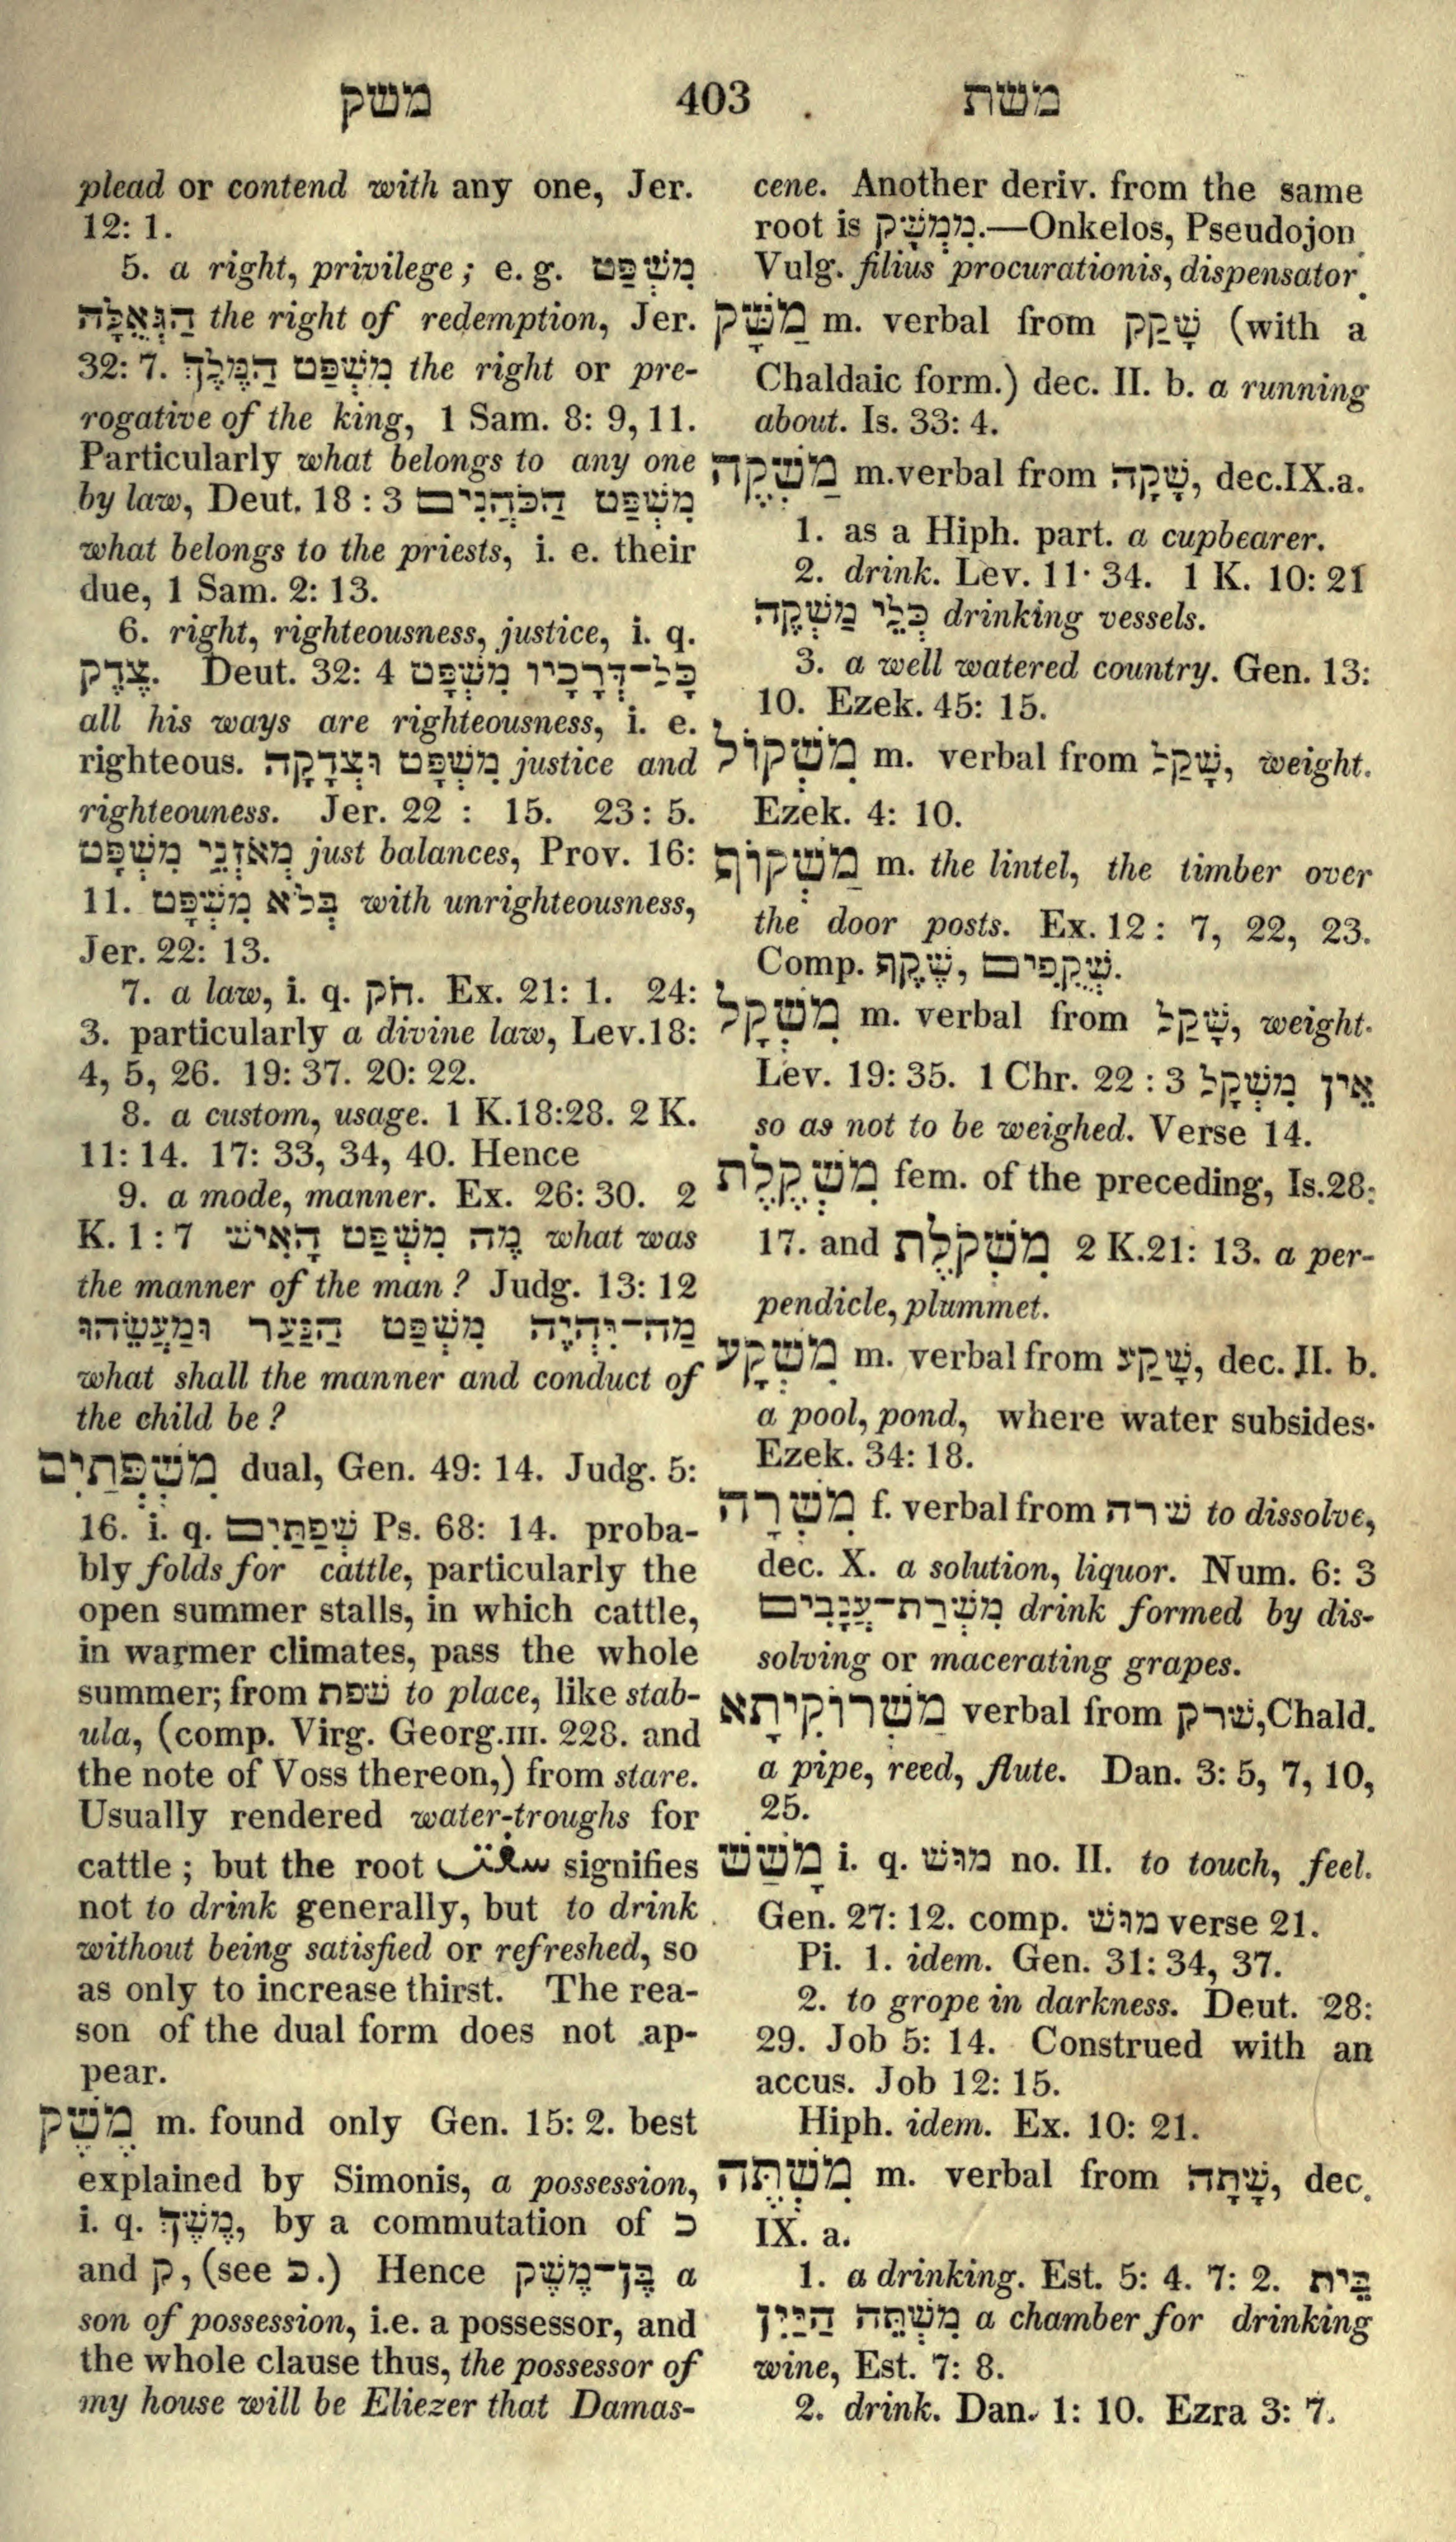 משק 403 משת
plead or contend with any one, Jer.
12: 1.
5. a right, privilege; e. g. מִשְׁפַּט
הַגְּאֻלָּה the right of redemption, Jer.
32: 7. מִשְׁפַּט הַמֶּלֶךְ the right or pre-
rogative of the king, 1 Sam. 8: 9, 11.
Particularly what belongs to any one
by law, Deut. 18: 3 מִשְׁפַּט הַכֹּהֲנִים
what belongs to the priests, i. e. their
due, 1 Sam. 2: 13.
6. right, righteousness, justice, i. q.
צֶדֶק. Deut. 32: 4 כָּל־דְּרָכָיו מִשְׁפָּט
all his ways are righteousness, i. e.
righteous. מִשְׁפָּט וּצְדָקָה justice and
righteouness. Jer. 22: 15. 23: 5.
מֹאזְנֵי מִשְׁפָּט just balances, Prov. 16:
11. בְּלֹא מִשְׁפָּט with unrighteousness,
Jer. 22: 13.
7. a law, i. q. חֹק. Ex. 21: 1. 24:
3. particularly a divine law, Lev.18:
4, 5, 26. 19: 37. 20: 22.
8. a custom, usage. 1 K.18:28. 2 K.
11: 14. 17: 33, 34, 40. Hence
9. a mode, manner. Ex. 26: 30. 2
K. 1: 7 מֶה מִשְׁפַּט הָאִישׁ what was
the manner of the man? Judg. 13: 12
מַה־יִּהְיֶה מִשְׁפַּט הַנַּעַר וּמַעֲשֵׂהוּ
what shall the manner and conduct of
the child be?
מִשְׁפְּתַיִם dual, Gen. 49: 14. Judg. 5:
16. i. q. שְׁפַתַּיִם Ps. 68: 14. proba-
bly folds for cattle, particularly the
open summer stalls, in which cattle,
in warmer climates, pass the whole
summer; from שפת to place, like stab-
ula, (comp. Virg. Georg.III. 228. and
the note of Voss thereon,) from stare.
Usually rendered water-troughs for
cattle; but the root signifies
not to drink generally, but to drink
without being satisfied or refreshed, so
as only to increase thirst. The rea-
son of the dual form does not ap-
pear.
מֶשֶׁק m. found only Gen. 15: 2. best
explained by Simonis, a possession,
i. q. מֶשֶׁךְ, by a commutation of כ
and ק, (see כ.) Hence בֶּן־מֶשֶׁק a
son of possession, i.e. a possessor, and
the whole clause thus, the possessor of
my house will be Eliezer that Damas-
cene. Another deriv. from the same
root is מִמְשָׁק.—Onkelos, Pseudojon
Vulg. filius procurationis, dispensator.
מַשָּׁק m. verbal from שָׁקַק (with a
Chaldaic form.) dec. II. b. a running
about. Is. 33: 4.
מַשְׁקֶה m. verbal from שָׁקָה, dec.IX.a.
1. as a Hiph. part. a cupbearer.
2. drink. Lev. 11· 34. 1 K. 10: 21
כְּלֵי מַשְׁקֶה drinking vessels.
3. a well watered country. Gen. 13:
10. Ezek. 45: 15.
מִשְׁקוֹל m. verbal from שָׁקַל, weight.
Ezek. 4: 10.
מַשְׁקוֹף m. the lintel, the timber over
the door posts. Ex. 12: 7, 22, 23.
Comp. שֶׁקֶף, שְׁקֻפִים.
מִשְׁקָל m. verbal from שָׁקַל, weight.
Lev. 19: 35. 1 Chr. 22: 3 אֵין מִשְׁקָל
so as not to be weighed. Verse 14.
מִשְׁקֶלֶת fem. of the preceding, Is.28:
17. and מִשְׁקֹלֶת 2 K.21: 13. a per-
pendicle, plummet.
מִשְׁקָע m. verbal from שָׁקַע, dec. II. b.
a pool, pond, where water subsides.
Ezek. 34: 18.
מִשְׁרָה f. verbal from שרה to dissolve,
dec. X. a solution, liquor. Num. 6: 3
מִשְׁרַת־עֲנָבִים drink formed by dis-
solving or macerating grapes.
מַשְׁרוֹקִיתָא verbal from שרק, Chald.
a pipe, reed, flute. Dan. 3: 5, 7, 10,
25.
מָשַׁשׁ i. q. מוּשׁ no. II. to touch, feel.
Gen. 27: 12. comp. מוּשׁ verse 21.
Pi. 1. idem. Gen. 31: 34, 37.
2. to grope in darkness. Deut. 28:
29. Job 5: 14. Construed with an
accus. Job 12: 15.
Hiph. idem. Ex. 10: 21.
מִשְׁתֶּה m. verbal from שָׁתָה, dec.
IX. a.
1. a drinking. Est. 5: 4. 7: 2. בֵּית
מִשְׁתֵּה הַיַּיִן a chamber for drinking
wine, Est. 7: 8.
2. drink. Dan. 1: 10. Ezra 3: 7.